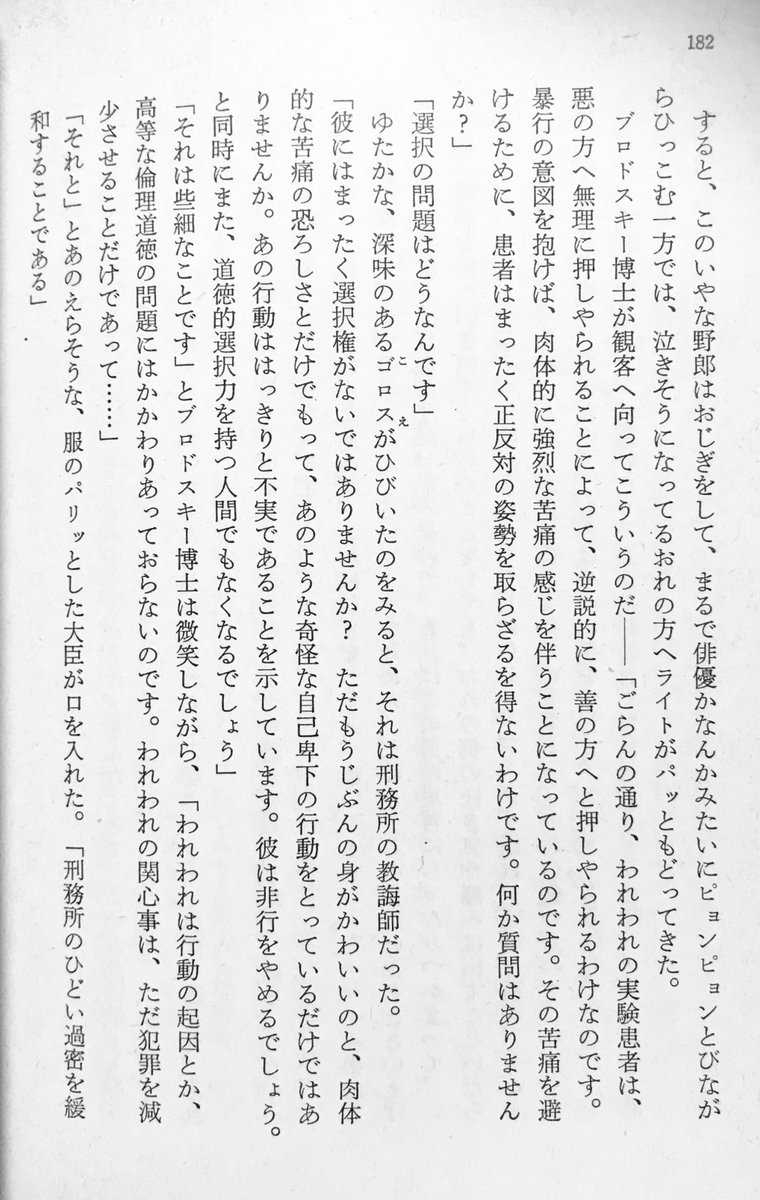 182
すると、このいやな野郎はおじぎをして、まるで俳優かなんかみたいにピョンピョンとびなが
らひっこむ一方では、泣きそうになってるおれの方へライトがパッともどってきた。
ブロドスキー博士が観客へ向ってこういうのだ――「ごらんの通り、われわれの実験患者は、
悪の方へ無理に押しやられることによって、逆説的に、善の方へと押しやられるわけなのです。
暴行の意図を抱けば、肉体的に強烈な苦痛の感じを伴うことになっているのです。その苦痛を避
けるために、患者はまったく正反対の姿勢を取らざるを得ないわけです。何か質問はありません
か?」
「選択の問題はどうなんです」
ゆたかな、深味のあるゴロスがひびいたのをみると、それは刑務所の教誨師だった。
こえ
「彼にはまったく選択権がないではありませんか? ただもうじぶんの身がかわいいのと、肉体
的な苦痛の恐ろしさとだけでもって、あのような奇怪な自己卑下の行動をとっているだけではあ
りませんか。あの行動ははっきりと不実であることを示しています。彼は非行をやめるでしょう。
と同時にまた、道徳的選択力を持つ人間でもなくなるでしょう」
「それは些細なことです」とブロドスキー博士は微笑しながら、「われわれは行動の起因とか、
高等な倫理道徳の問題にはかかわりあっておらないのです。われわれの関心事は、ただ犯罪を減
少させることだけであって……」
「それと」とあのえらそうな、服のパリッとした大臣が口を入れた。「刑務所のひどい過密を緩
和することである」